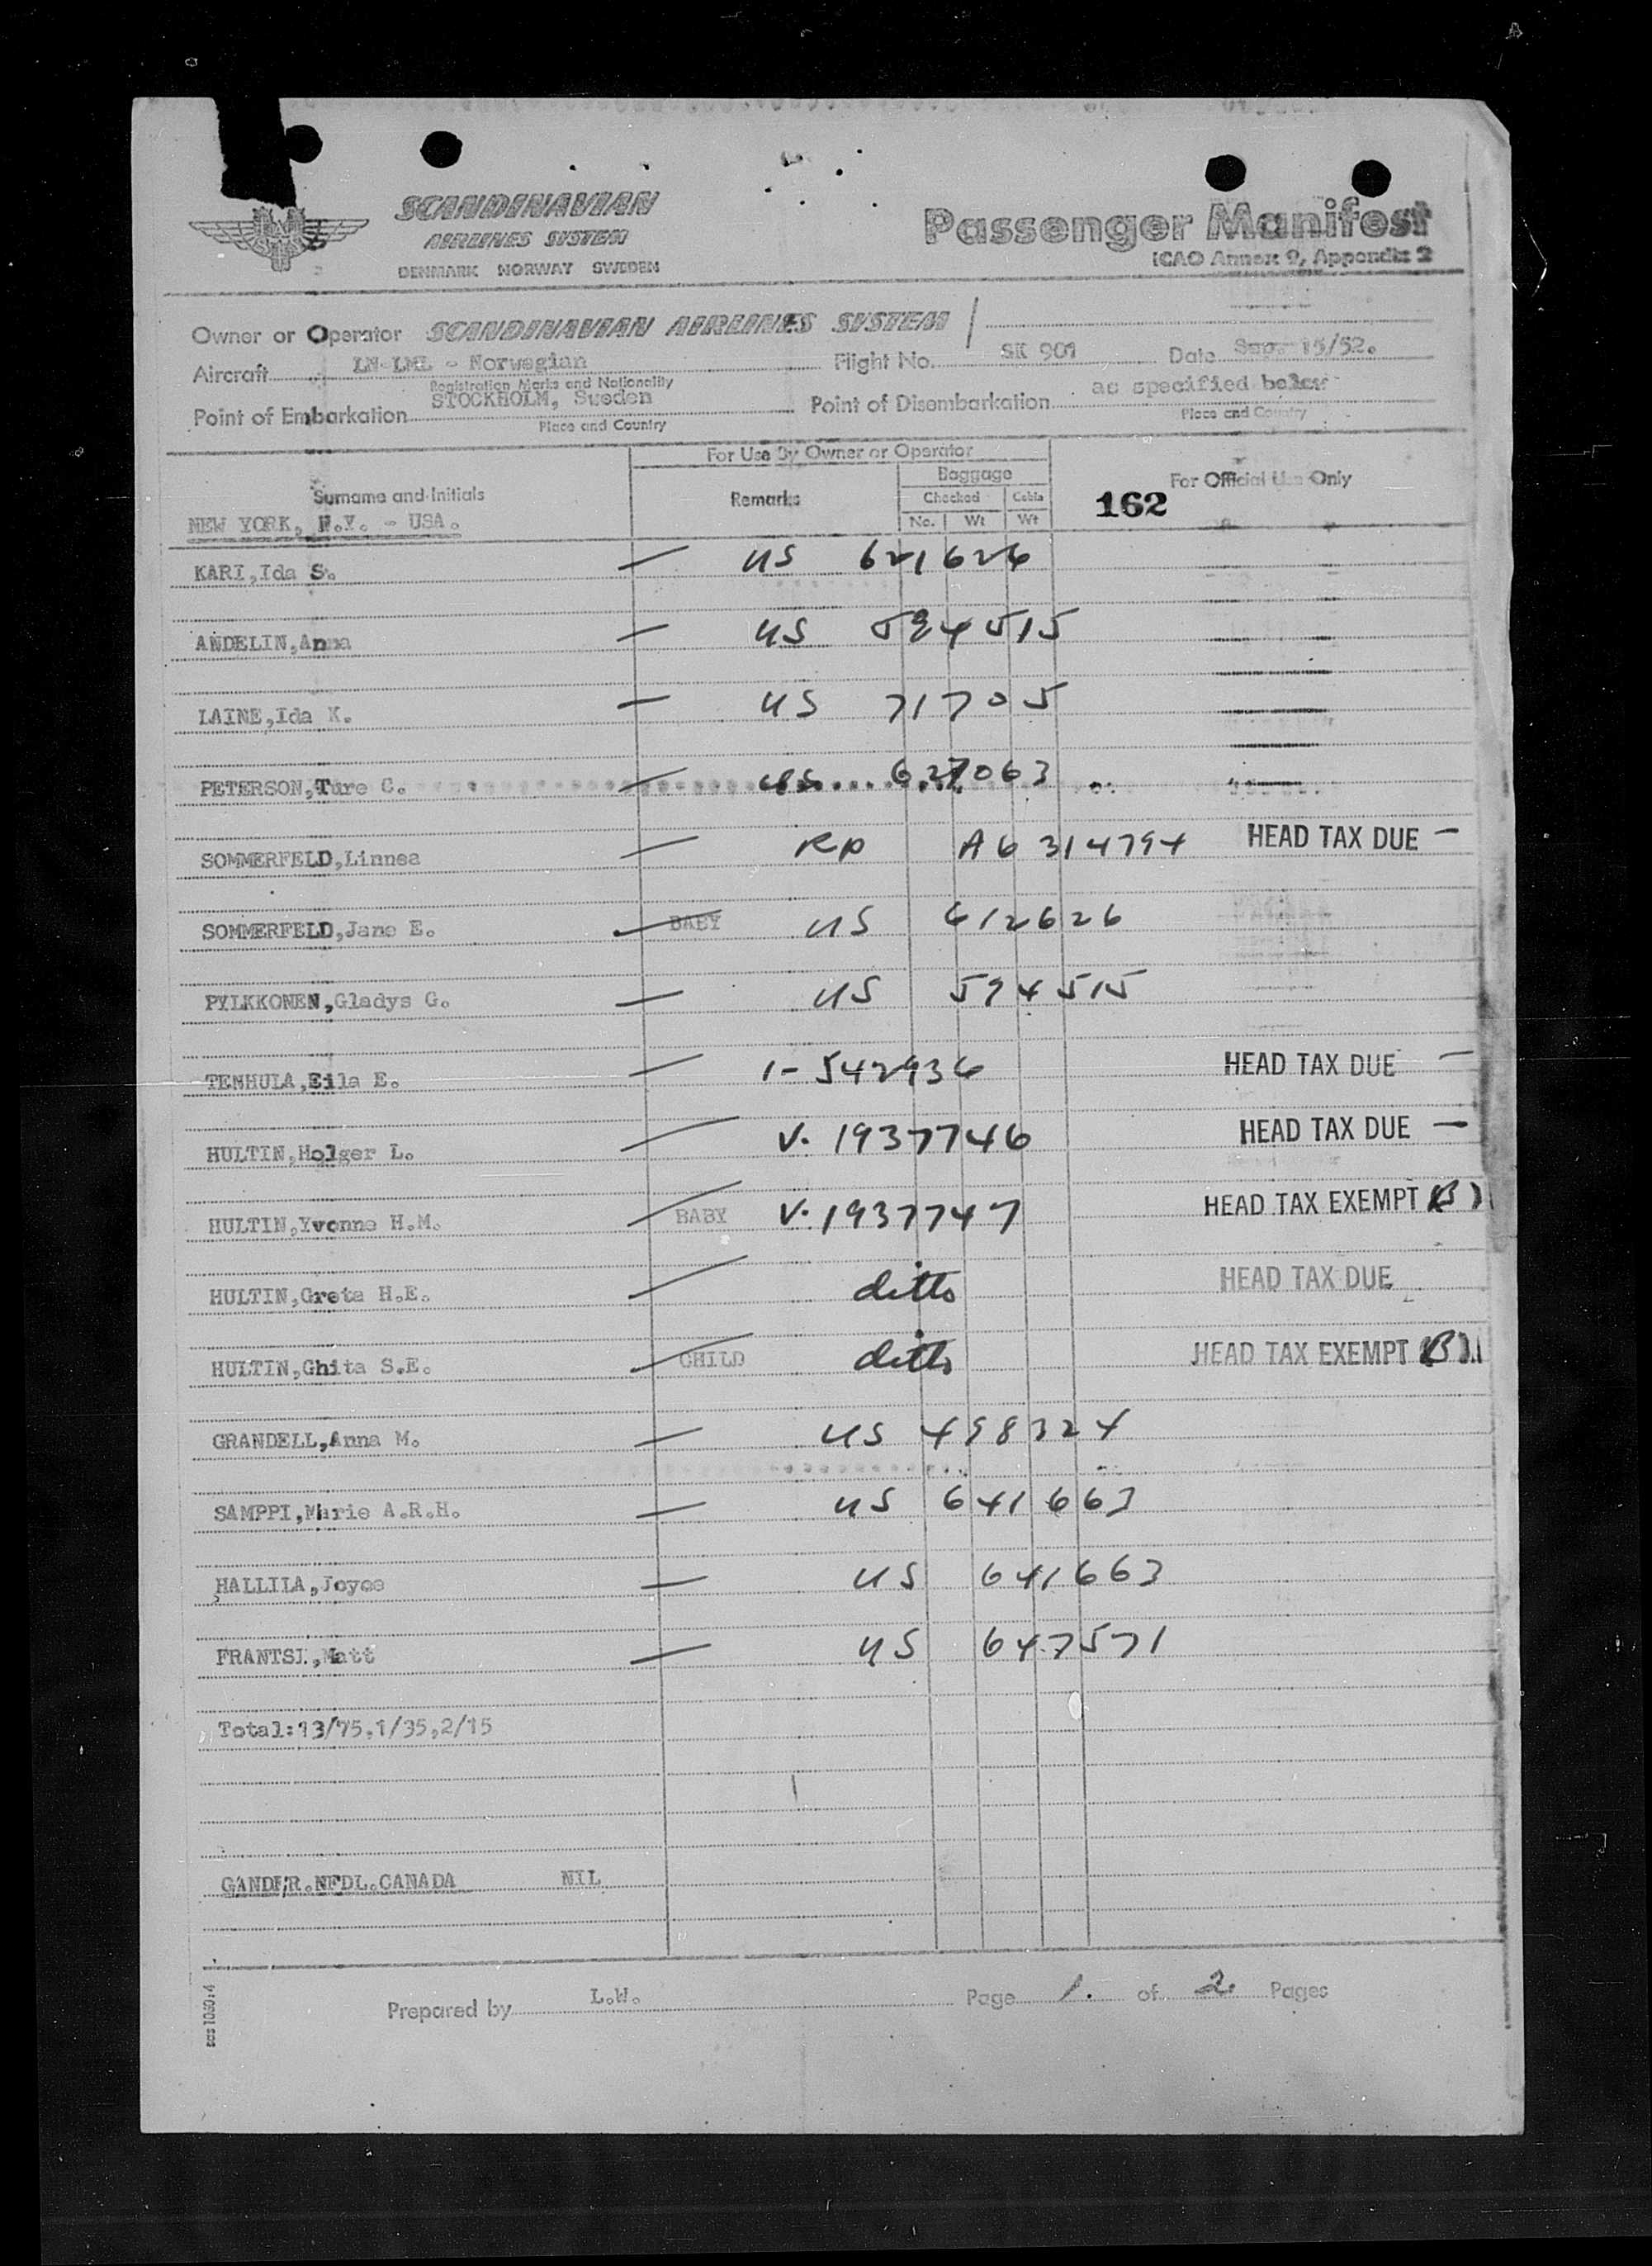 SCANDINAVIAN
AIRLINES SYSTEM
DENMARK NORWAY SWEDEN
Passenger Manifest
ICAO Annex 9, Appendix 2
Owner or Operator SCANDINAVIAN AIRLINES SYSTEM
Aircraft LN-LML - Norwegian Flight No. SK 901 Date Sep. 15/52.
Registration Marks and Nationality
Point of Embarkation STOCKHOLM, Sweden Point of Disembarkation as specified below
Place and Country Place and Country
For Use By Owner or Operator
Surname and Initials Remarks Baggage For Official Use Only
Checked Cabin
No. Wt Wt
162
NEW YORK, N.Y. - USA.
KARI,Ida S. US 621626
ANDELIN,Anna US 594515
LAINE,Ida K. US 71705
PETERSON,Ture C. US 627063
SOMMERFELD,Linnea RP A6 314794 HEAD TAX DUE —
SOMMERFELD,Jane E. BABY US 612626
PYLKKONEN,Gladys G. US 594515
TENHULA,Eila E. 1-542936 HEAD TAX DUE —
HULTIN,Holger L. V. 1937746 HEAD TAX DUE —
HULTIN,Yvonne H.M. BABY V. 1937747 HEAD TAX EXEMPT (B)
HULTIN,Greta H.E. ditto HEAD TAX DUE
HULTIN,Ghita S.E. CHILD ditto HEAD TAX EXEMPT (B)
GRANDELL,Anna M. US 498324
SAMPPI,Marie A.R.H. US 641663
HALLILA,Joyce US 641663
FRANTSI,Matt US 647571
Total:13/75,1/35,2/15
GANDER.NFDL.CANADA NIL
Prepared by L.W. Page 1. of 2. Pages
sas 1060:4